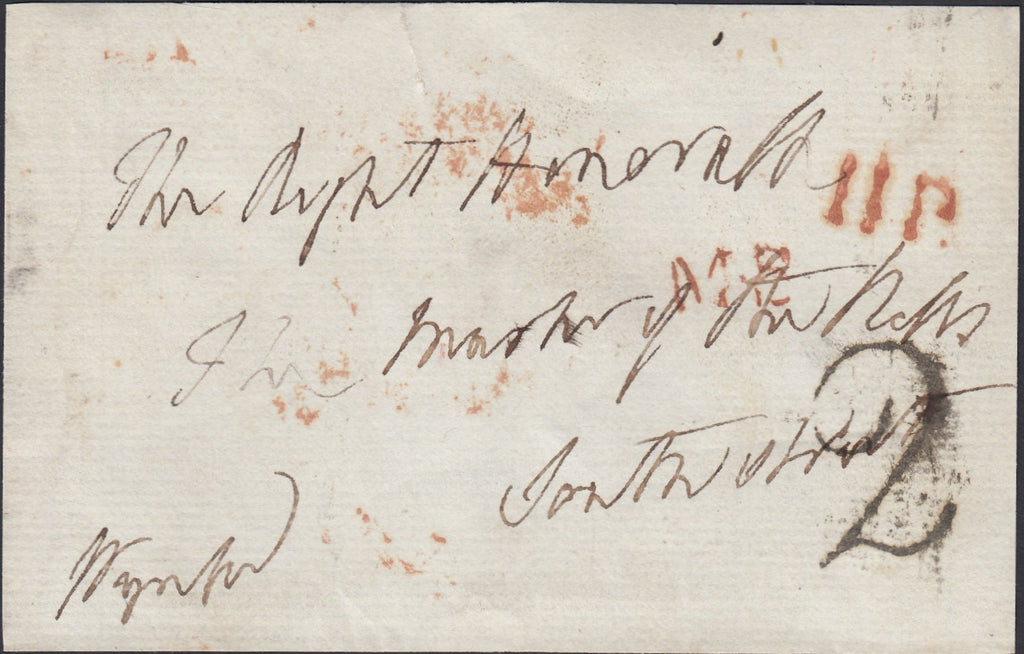 The Right Honorable
11 P
The Master of the Rolls
2
South Street
Wynford